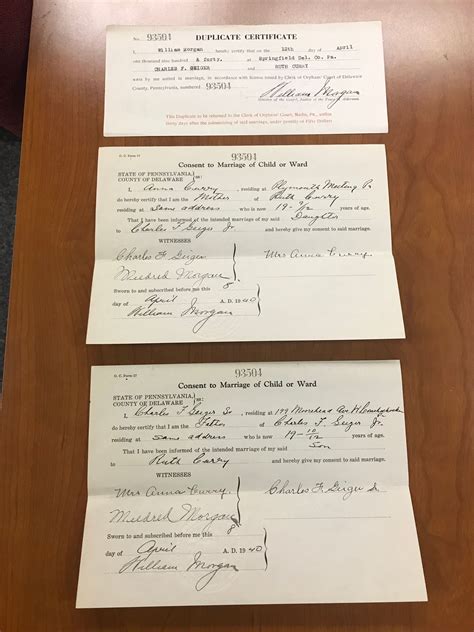 No. 93504 DUPLICATE CERTIFICATE
I, William Morgan hereby certify that on the 12th day of April
one thousand nine hundred & forty, at Springfield Del. Co. Pa.
CHARLES F. GEIGER and RUTH CURRY
were by me united in marriage, in accordance with license issued by Clerk of Orphans' Court of Delaware
County, Pennsylvania, numbered 93504
William Morgan
This Duplicate to be returned to the Clerk of Orphans' Court, Media, Pa. within
thirty days after the solemnizing of said marriage, under penalty of Fifty Dollars
O. C. Form 27
93504
Consent to Marriage of Child or Ward
STATE OF PENNSYLVANIA
COUNTY OF DELAWARE } ss:
I, Anna Curry, residing at Plymouth Meeting Pa
do hereby certify that I am the Mother of Ruth Curry
residing at Same address who is now 19 - /12 years of age.
That I have been informed of the intended marriage of my said Daughter
to Charles F Geiger Jr and hereby give my consent to said marriage.
WITNESSES
Charles F Geiger
Mrs Anna Curry
Mildred Morgan
Sworn to and subscribed before me this 8
day of April A. D. 1940
William Morgan
O. C. Form 27
93504
Consent to Marriage of Child or Ward
STATE OF PENNSYLVANIA
COUNTY OF DELAWARE } ss:
I, Charles F Geiger Sr, residing at 199 Moorehead Ave W Conshohocken
do hereby certify that I am the Father of Charles F. Geiger Jr.
residing at Same address who is now 19 - 10/12 years of age.
That I have been informed of the intended marriage of my said Son
to Ruth Curry and hereby give my consent to said marriage.
WITNESSES
Mrs Anna Curry
Charles F Geiger Sr
Mildred Morgan
Sworn to and subscribed before me this 8
day of April A. D. 1940
William Morgan